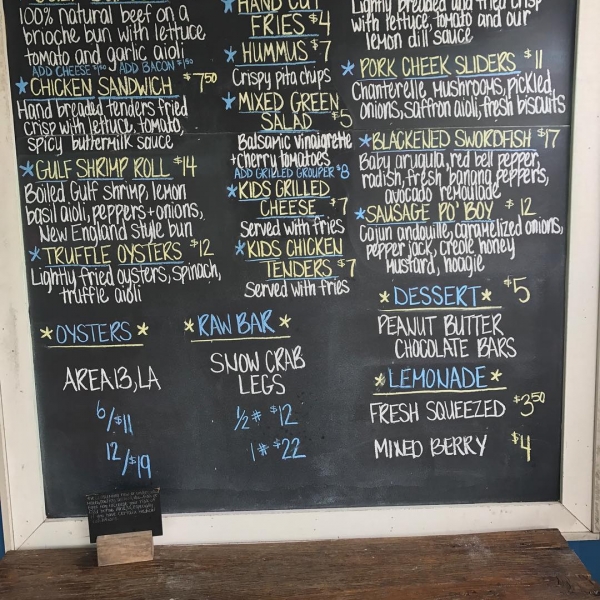 100% natural beef on a
brioche bun with lettuce
tomato and garlic aioli
ADD CHEESE $1.00 ADD BACON $1.50
★CHICKEN SANDWICH $7.50
Hand breaded tenders fried
crisp with lettuce, tomato,
spicy buttermilk sauce
★GULF SHRIMP ROLL $14
Boiled Gulf shrimp, lemon
basil aioli, peppers+onions,
New England style bun
★TRUFFLE OYSTERS $12
Lightly fried oysters, spinach,
truffle aioli
★OYSTERS★
AREA 13, LA
6/$11
12/$19
HAND CUT
★FRIES $4
★HUMMUS $7
Crispy pita chips
★MIXED GREEN
SALAD $5
Balsamic vinaigrette
+cherry tomatoes
ADD GRILLED GROUPER $8
★KIDS GRILLED
CHEESE $7
Served with fries
★KIDS CHICKEN
TENDERS $7
Served with fries
★RAW BAR★
SNOW CRAB
LEGS
½# $12
1# $22
Lightly breaded and fried crisp
with lettuce, tomato and our
lemon dill sauce
★PORK CHEEK SLIDERS $11
Chanterelle Mushrooms, pickled
onions, saffron aioli, fresh biscuits
★BLACKENED SWORDFISH $17
Baby arugula, red bell pepper,
radish, fresh banana peppers,
avocado remoulade
★SAUSAGE PO' BOY $12
Cajun andouille, caramelized onions,
pepper jack, creole honey
mustard, hoagie
★DESSERT★ $5
PEANUT BUTTER
CHOCOLATE BARS
★LEMONADE★
FRESH SQUEEZED $3.50
MIXED BERRY $4